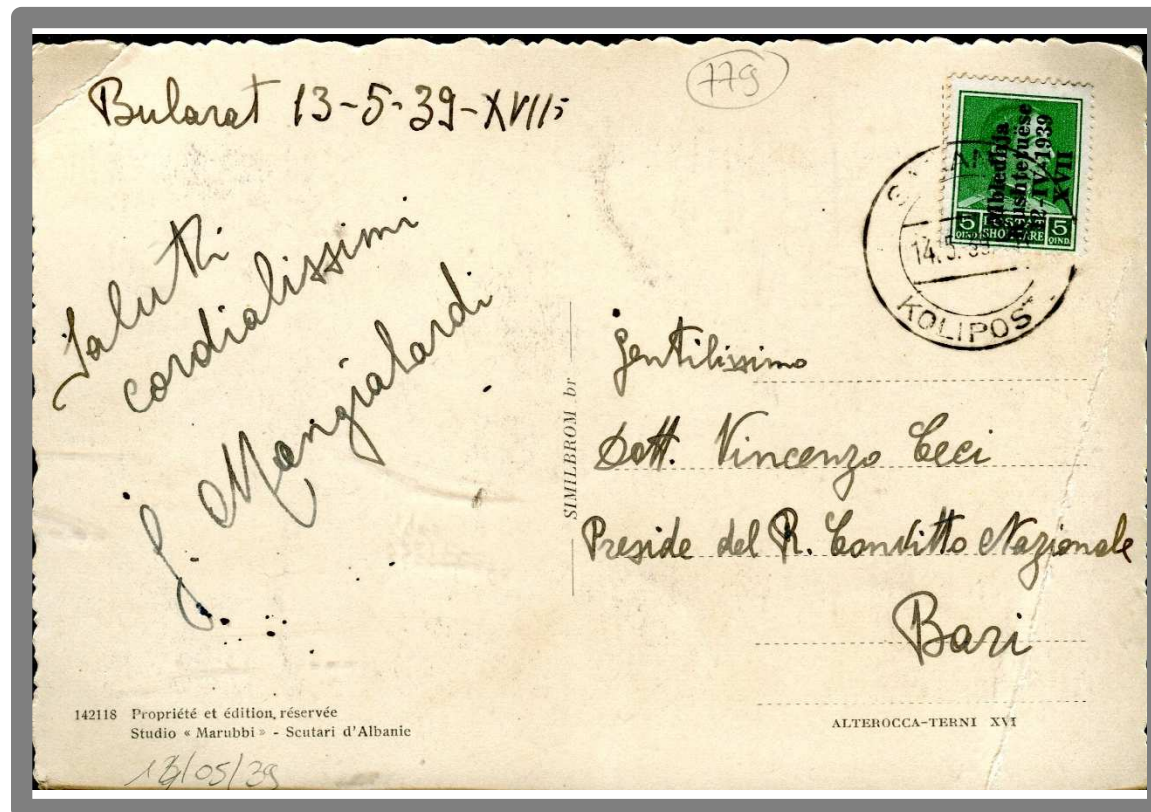 Bularat 13-5-39-XVII°
779
Saluti
cordialissimi
Mangialardi
Mbledhja
Kushtetuese
12-IV-1939
XVII
5 5
QIND. QIND.
14.5.39
KOLIPOST
SIMILBROM br
Gentilissimo
Dott. Vincenzo Ceci
Preside del R. Convitto Nazionale
Bari
142118 Propriété et édition, réservée
Studio « Marubbi » - Scutari d'Albanie
ALTEROCCA-TERNI XVI
13/05/39